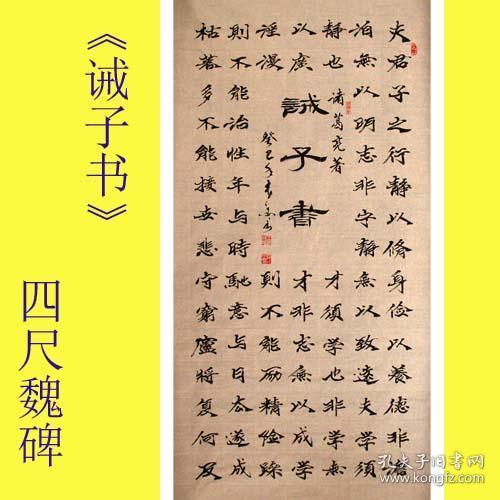 《诫子书》
四尺魏碑
夫君子之行静以脩身俭以養德非澹
泊無以明志非宁静無以致遠夫學須
静也
才須學也非學無
以廣
才非志無以成學
淫漫
則不能励精險躁
則不能治性年与時馳意与日去遂成
枯落多不能接世悲守窮廬將复何及
誡子書
諸葛亮著
癸巳
孔夫子旧书网
www.kongfz.com